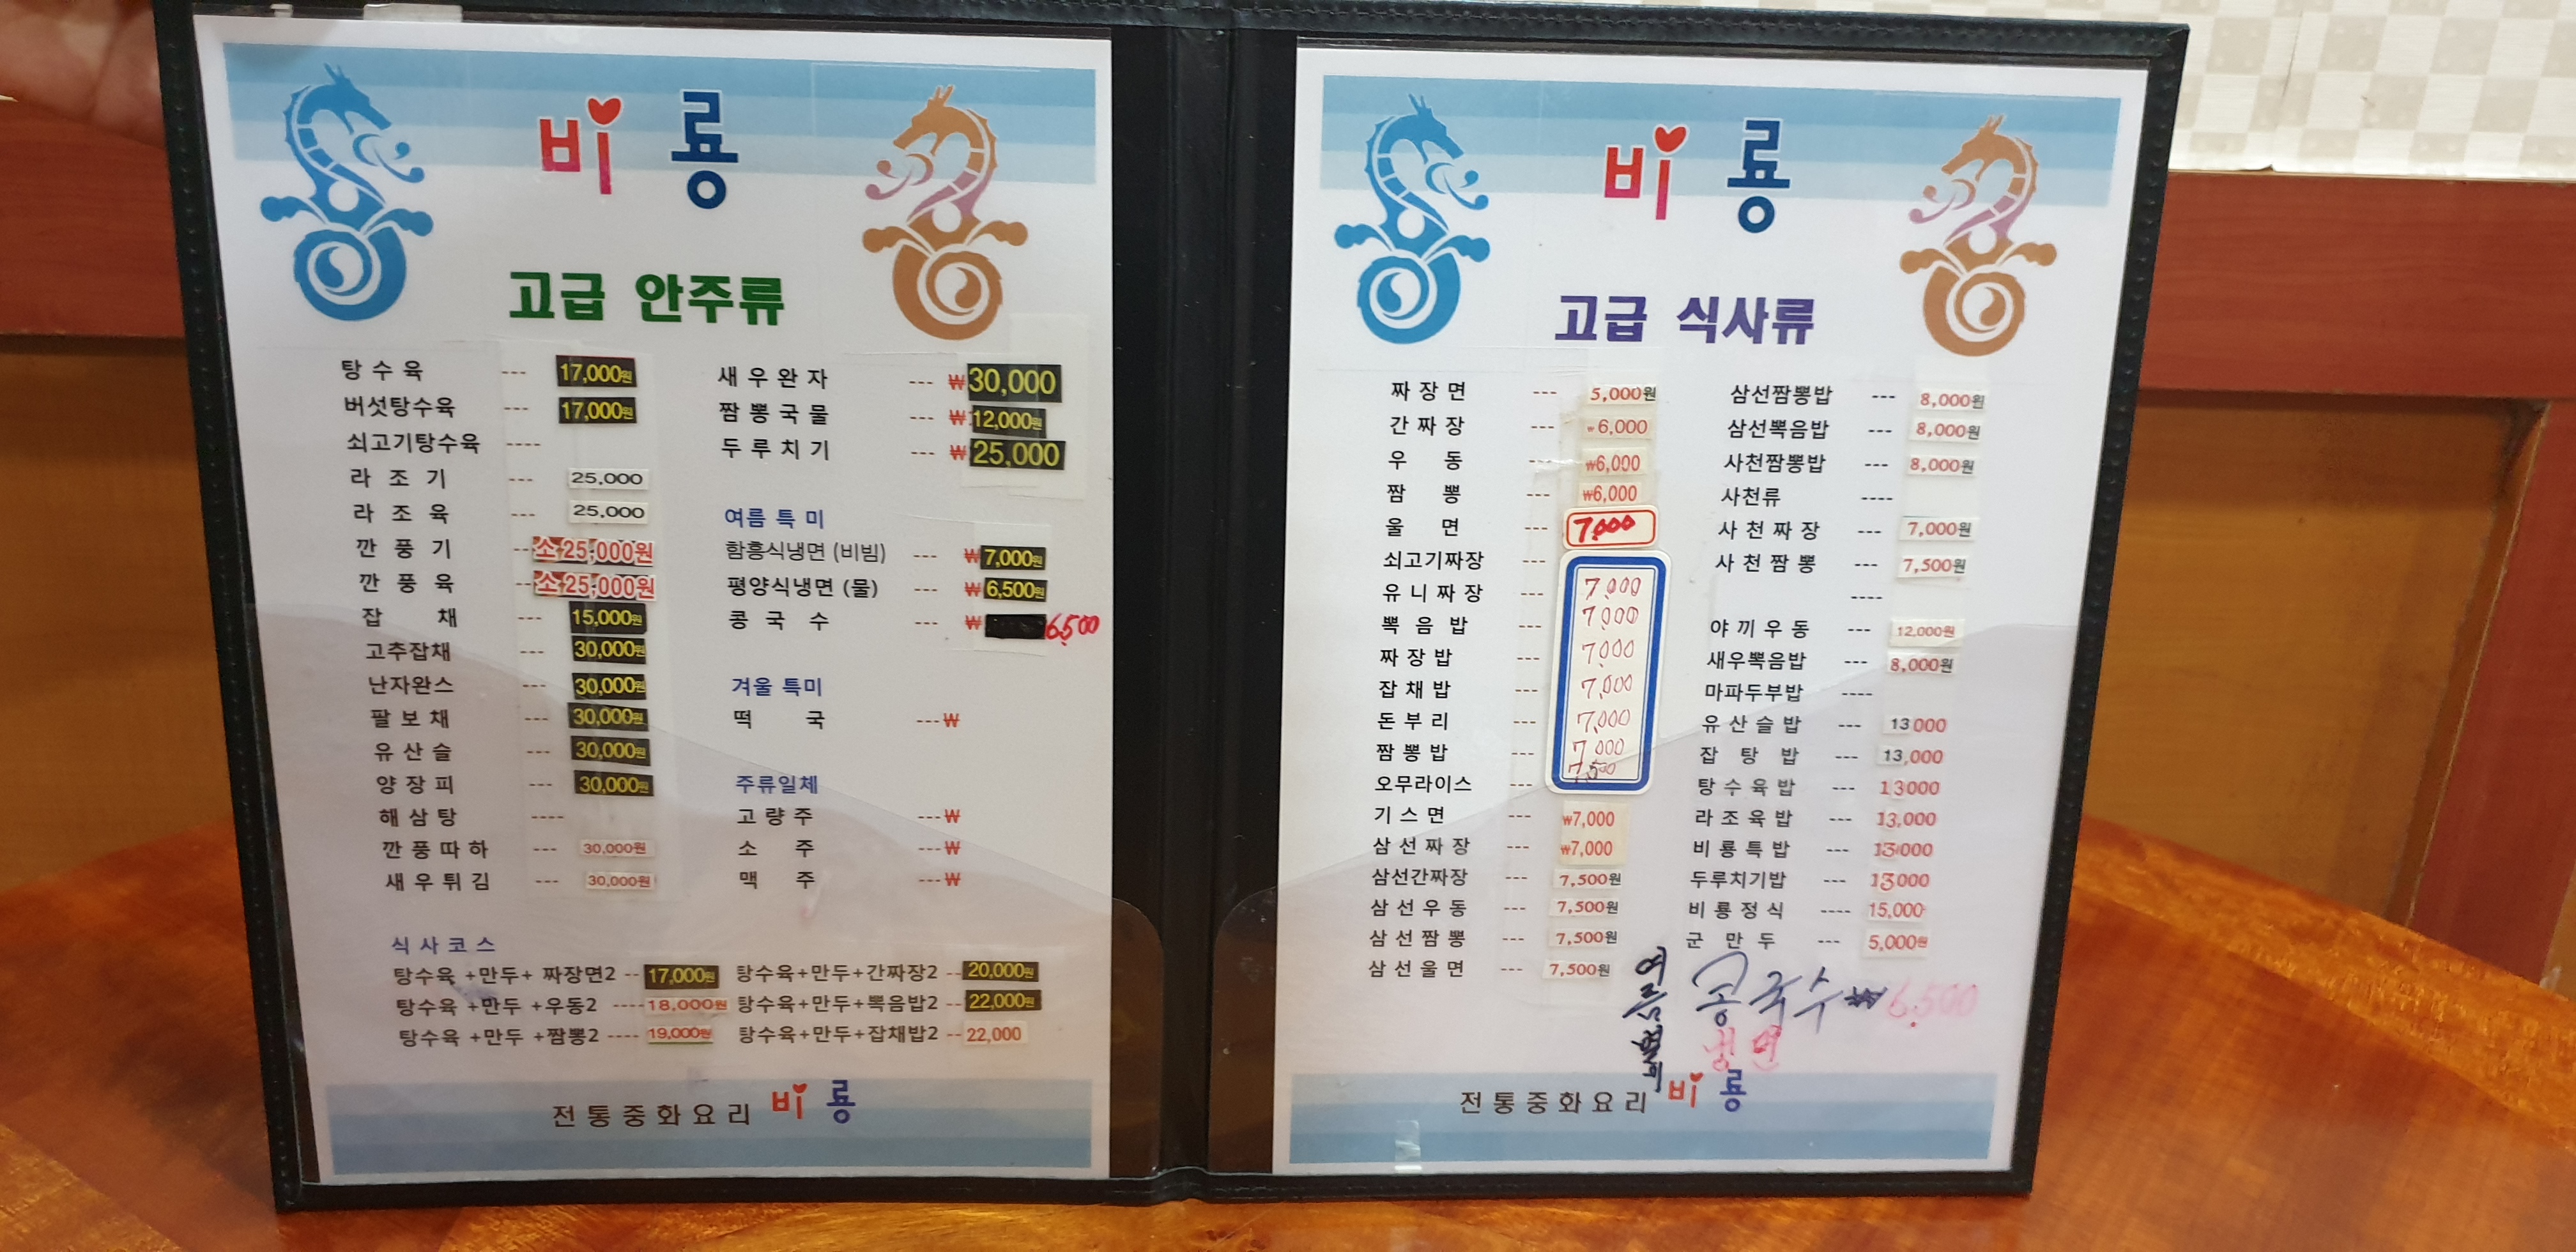 비룡
고급 안주류
탕수육 --- 17,000원
버섯탕수육 --- 17,000원
쇠고기탕수육 ----
라조기 --- 25,000
라조육 --- 25,000
깐풍기 -- 소 25,000원
깐풍육 -- 소 25,000원
잡채 --- 15,000원
고추잡채 --- 30,000원
난자완스 --- 30,000원
팔보채 --- 30,000원
유산슬 --- 30,000원
양장피 --- 30,000원
해삼탕 ----
깐풍따하 --- 30,000원
새우튀김 --- 30,000원
새우완자 --- ₩30,000
짬뽕국물 --- ₩12,000원
두루치기 --- ₩25,000
여름 특미
함흥식냉면 (비빔) --- ₩7,000원
평양식냉면 (물) --- ₩6,500원
콩국수 --- ₩ 6,500
겨울 특미
떡국 --- ₩
주류일체
고량주 --- ₩
소주 --- ₩
맥주 --- ₩
식사코스
탕수육 +만두+ 짜장면2 -- 17,000원
탕수육 +만두 +우동2 ---- 18,000원
탕수육 +만두 +짬뽕2 ---- 19,000원
탕수육+만두+간짜장2 -- 20,000원
탕수육+만두+볶음밥2 -- 22,000원
탕수육+만두+잡채밥2 -- 22,000
전통중화요리 비룡
비룡
고급 식사류
짜장면 --- 5,000원
간짜장 --- ₩6,000
우동 --- ₩6,000
짬뽕 --- ₩6,000
울면 --- 7,000
쇠고기짜장 --- 7,000
유니짜장 --- 7,000
볶음밥 --- 7,000
짜장밥 --- 7,000
잡채밥 --- 7,000
돈부리 --- 7,000
짬뽕밥 --- 7,500
오무라이스 ---
기스면 --- ₩7,000
삼선짜장 --- ₩7,000
삼선간짜장 --- 7,500원
삼선우동 --- 7,500원
삼선짬뽕 --- 7,500원
삼선울면 --- 7,500원
삼선짬뽕밥 --- 8,000원
삼선볶음밥 --- 8,000원
사천짬뽕밥 --- 8,000원
사천류 ----
사천짜장 --- 7,000원
사천짬뽕 --- 7,500원
----
야끼우동 --- 12,000원
새우볶음밥 --- 8,000원
마파두부밥 ----
유산슬밥 --- 13000
잡탕밥 --- 13,000
탕수육밥 --- 13000
라조육밥 --- 13,000
비룡특밥 --- 13000
두루치기밥 --- 13000
비룡정식 ---- 15,000
군만두 --- 5,000원
여름
콩국수 ₩6,500
냉면
전통중화요리 비룡